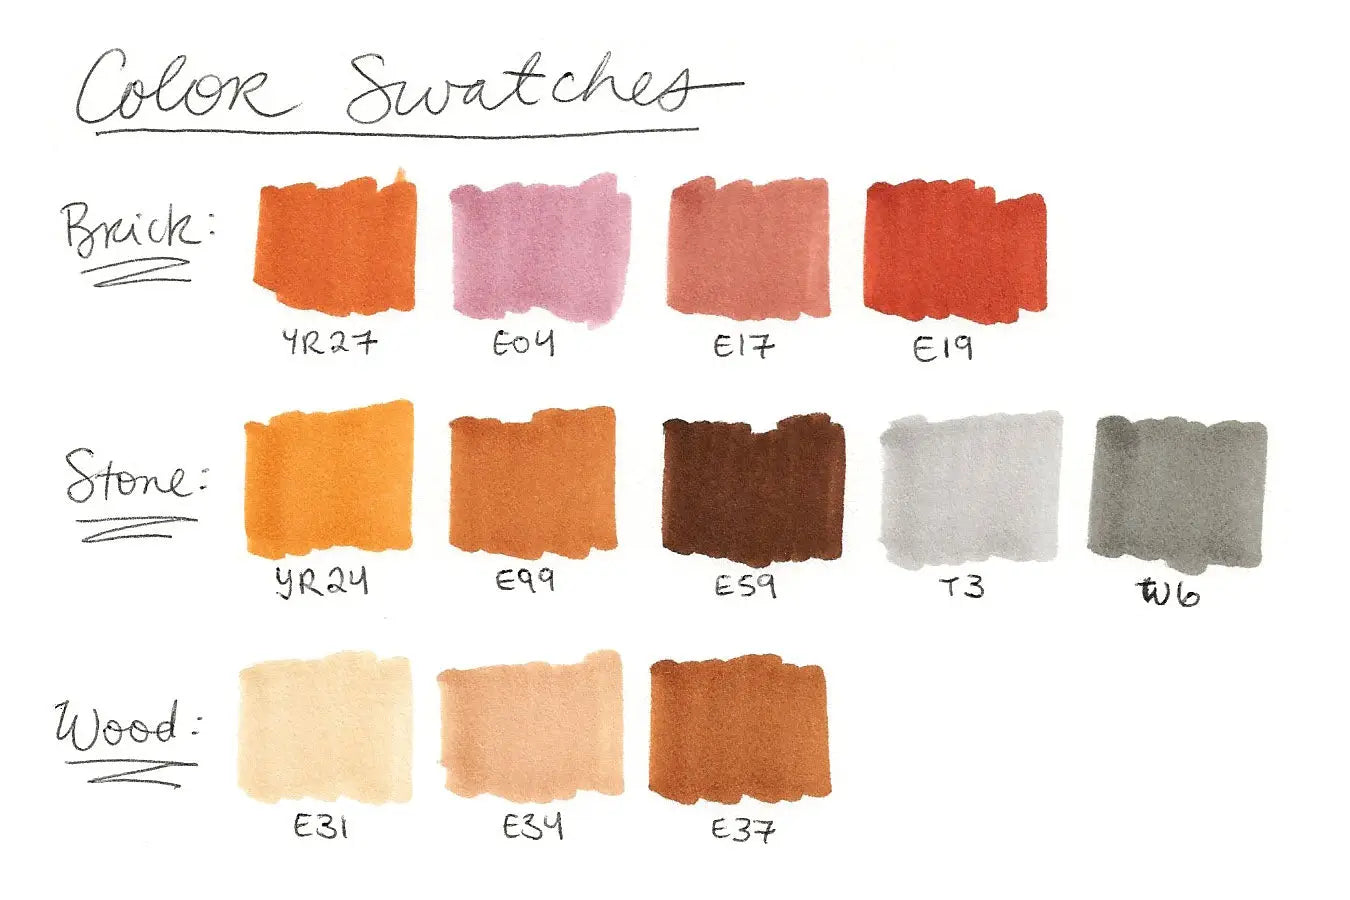 Color Swatches
Brick:
YR27 E04 E17 E19
Stone:
YR24 E99 E59 T3 W6
Wood:
E31 E34 E37